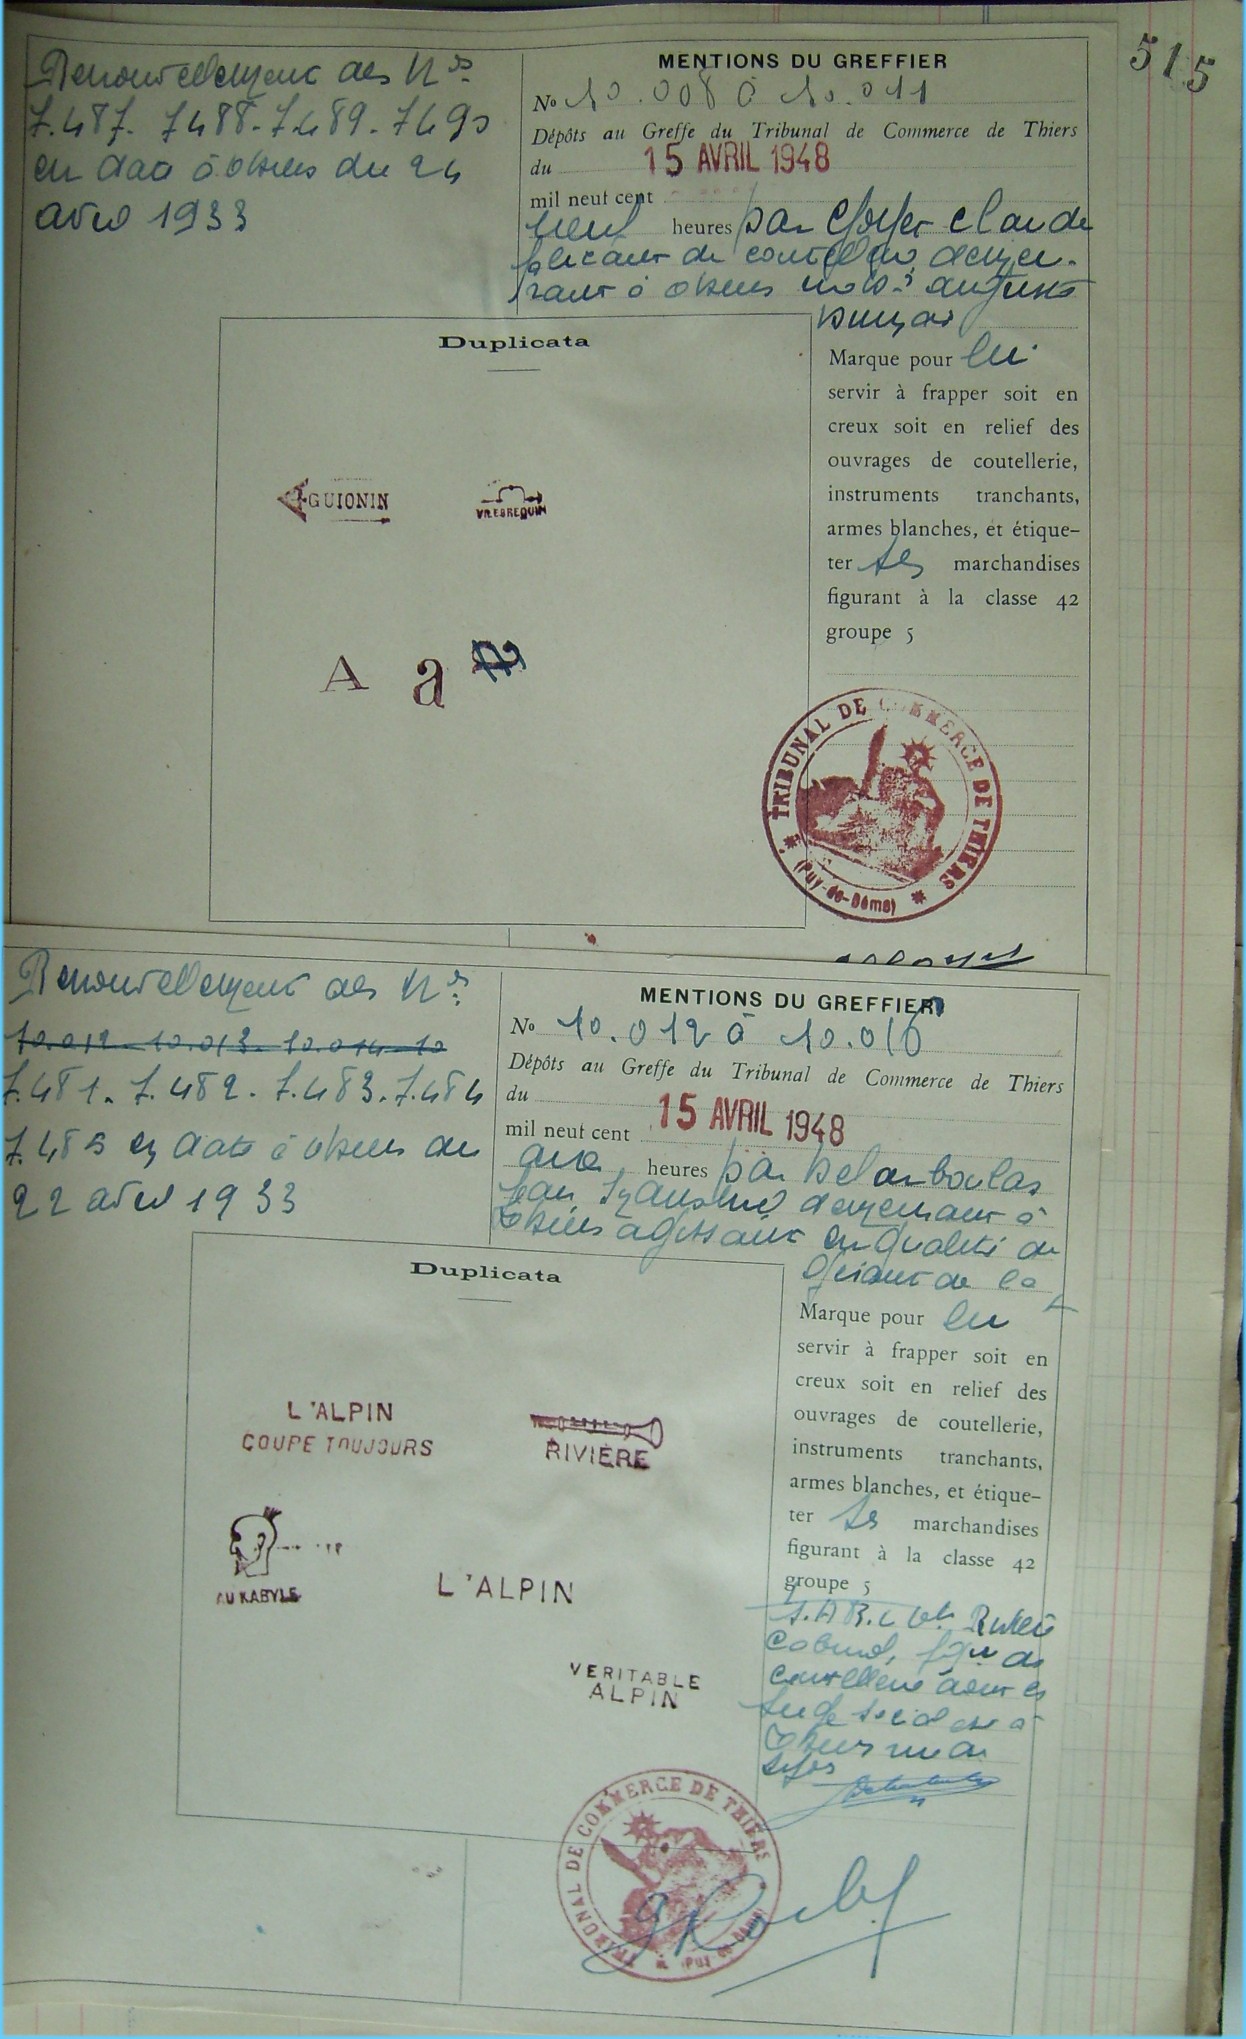 515
Renouvellement des Nos
7.487. 7488. 7489. 7490
en date à Thiers du 24
avril 1933
MENTIONS DU GREFFIER
No 10.008 à 10.011
Dépôts au Greffe du Tribunal de Commerce de Thiers
du 15 AVRIL 1948
mil neuf cent
neuf heures par Claude
fabricant de coutellerie, demeu-
rant à Thiers
Duplicata
GUIONIN
VILEBREQUIN
A a
Marque pour lui
servir à frapper soit en
creux soit en relief des
ouvrages de coutellerie,
instruments tranchants,
armes blanches, et étique-
ter ses marchandises
figurant à la classe 42
groupe 5
TRIBUNAL DE COMMERCE DE THIERS
(Puy-de-Dôme)
Renouvellement des Nos
10.012. 10.013. 10.014. 10
7.481. 7.482. 7.483. 7.484
7.485 en date à Thiers du
22 avril 1933
MENTIONS DU GREFFIER
No 10.012 à 10.016
Dépôts au Greffe du Tribunal de Commerce de Thiers
du
15 AVRIL 1948
mil neuf cent
heures par
demeurant à
Thiers agissant en qualité de
Gérant de la
Duplicata
L'ALPIN
COUPE TOUJOURS
RIVIÈRE
AU KABYLE
L'ALPIN
VERITABLE
ALPIN
Marque pour lui
servir à frapper soit en
creux soit en relief des
ouvrages de coutellerie,
instruments tranchants,
armes blanches, et étique-
ter ses marchandises
figurant à la classe 42
groupe 5
S.A.R.L.
de
coutellerie dont le
siège social est à
Thiers rue de
TRIBUNAL DE COMMERCE DE THIERS
(Puy-de-Dôme)